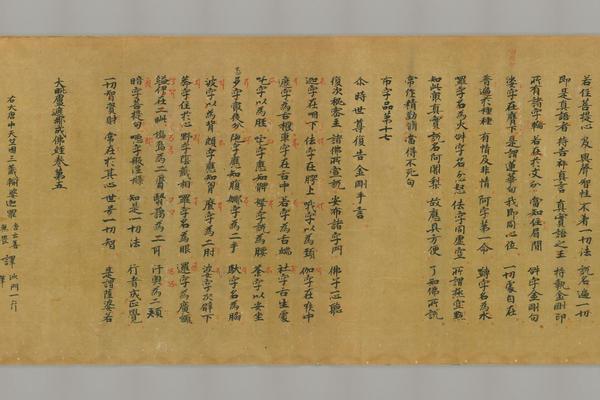 若住菩提心 及與聲智性 不著一切法 說名遍一切
即是真語者 持吉祥真言 真實語之王 持執金剛印
所有諸字輪 若在於支分 當知住眉間 吽字金剛句
娑字在臆下 是謂蓮華句 我即同心位 一切處自在
普遍於種種 有情及非情 阿字第一命 嚩字名為水
囉字名為火 吽字名忿怒 佉字同虛空 所謂極空點
知此最真實 說名阿闍梨 故應具方便 了知佛所說
常作精勤脩 當得不死句
布字品第十七
尒時世尊復告金剛手言
復次秘密主 諸佛所宣說 安布諸字門 佛子一心聽
迦字在咽下 佉字在齶上 哦字以為頸 伽字在喉中
遮字為舌根 車字在舌中 若字為舌端 社字舌生處
吒字以為脛 咤字應知髀 拏字說為腰 荼字以安坐
多字最後分 他字應知腹 娜字為二手 馱字名為脇
波字以為背 頗字應知胸 麼字為二肘 婆字次臂下
莽字住於心 野字陰藏相 囉字名為眼 邏字為廣額
縊伊在二眥 塢烏為二脣 翳藹為二耳 汙奧為二頰
暗字菩提句 噁字般涅槃 知是一切法 行者成正覺
一切智資財 常在於其心 世号一切智 是謂薩婆若
大毗盧遮那成佛經卷第五
右大唐中天竺國三藏輸婆迦羅 唐云善無畏 譯 沙門一行